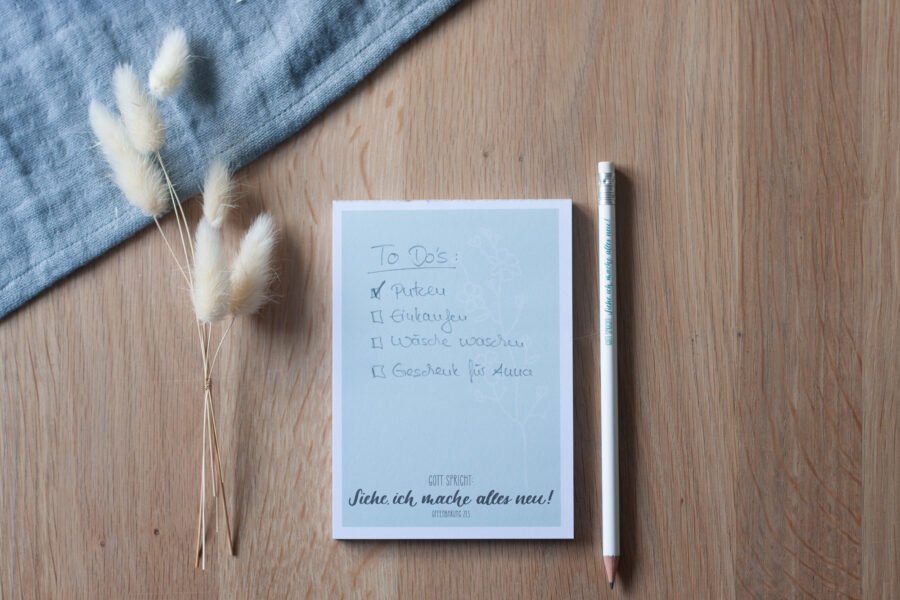 To Do's:
Putzen
Einkaufen
Wäsche waschen
Geschenk für Anna
GOTT SPRICHT:
Siehe, ich mache alles neu!
OFFENBARUNG 21,5
GOTT SPRICHT: Siehe, ich mache alles neu!